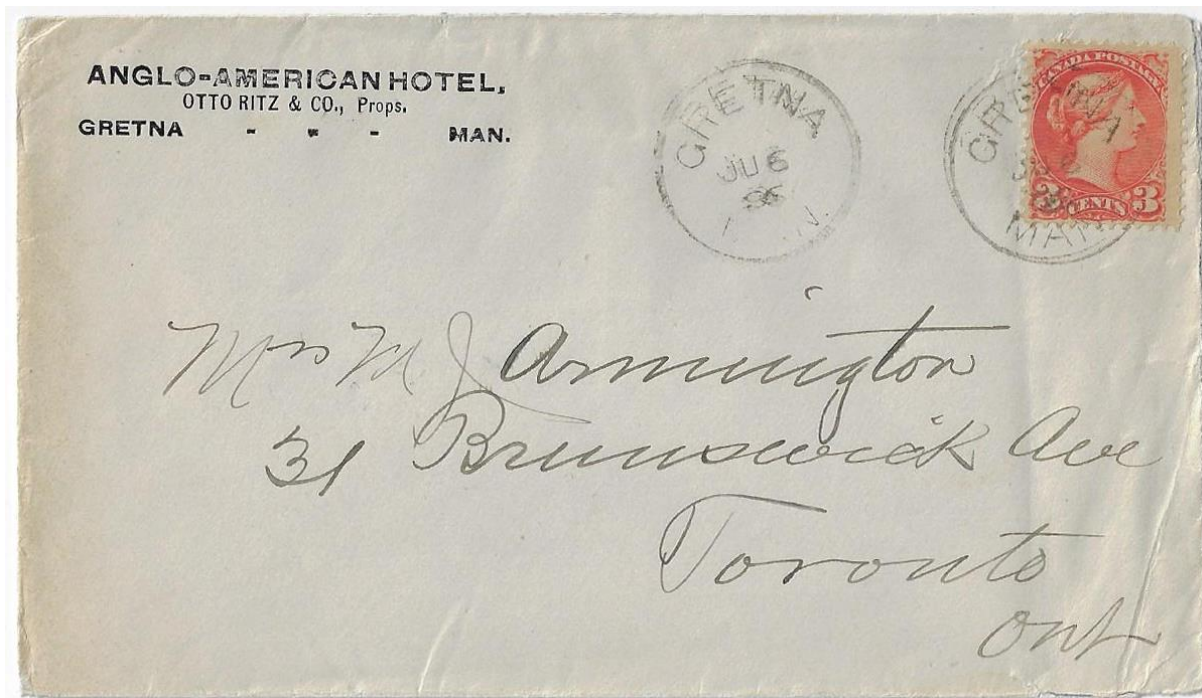 ANGLO-AMERICAN HOTEL,
OTTO RITZ & CO., Props.
GRETNA - - - MAN.
GRETNA
JU 6
96
GRETNA
MAN
CANADA POSTAGE
3 CENTS 3
Mrs M J Armington
31 Brunswick Ave
Toronto
Ont